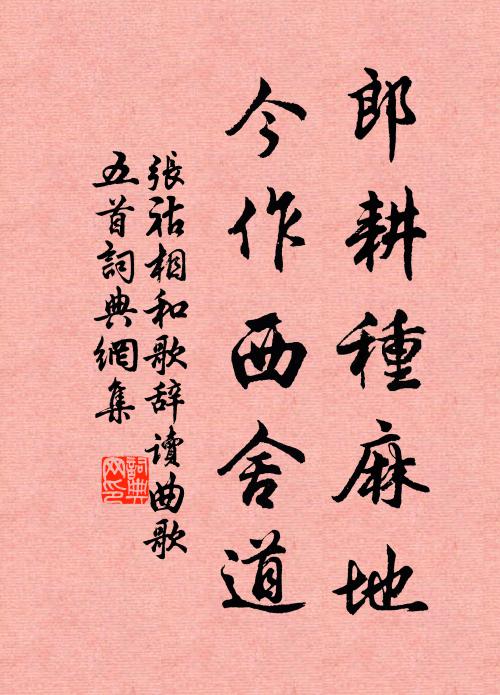 郎耕種麻地
今作西舍道
張祜相和歌辞读曲歌
五首詞典網集
詞典网印